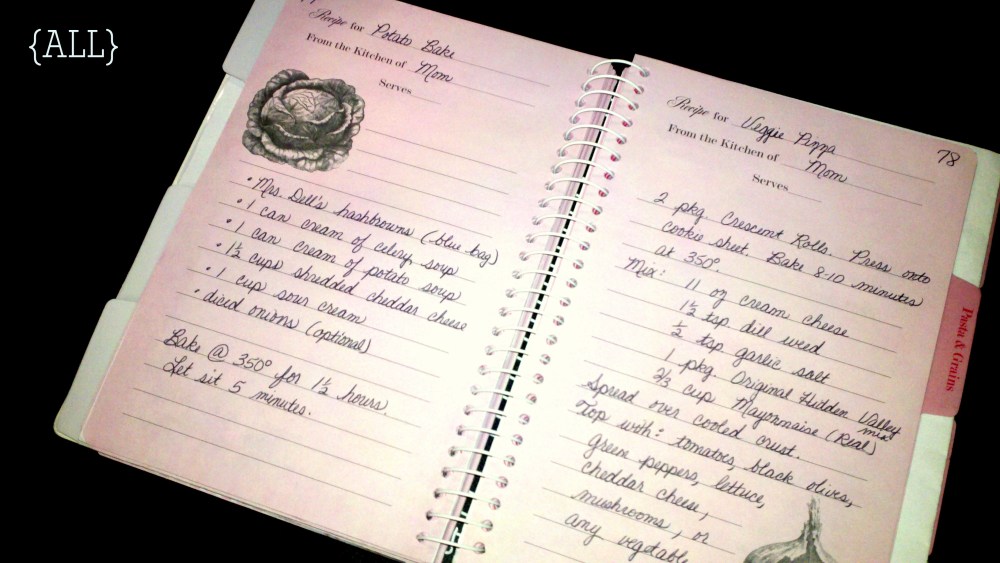 {ALL}
Recipe for Potato Bake
From the Kitchen of Mom
Serves
• Mrs. Dell's hashbrowns (blue bag)
• 1 can cream of celery soup
• 1 can cream of potato soup
• 1½ cups shredded cheddar cheese
• 1 cup sour cream
• diced onions (optional)
Bake @ 350° for 1½ hours.
Let sit 5 minutes.
Recipe for Veggie Pizza
78
From the Kitchen of Mom
Serves
2 pkg Crescent Rolls. Press onto
cookie sheet. Bake 8-10 minutes
at 350°.
Mix:
11 oz cream cheese
1½ tsp dill weed
½ tsp garlic salt
1 pkg Original Hidden Valley mix
⅔ cup Mayonnaise (Real)
Spread over cooled crust.
Top with: tomatoes, black olives,
green peppers, lettuce,
cheddar cheese,
mushrooms, or
any vegetable
Pasta & Grains